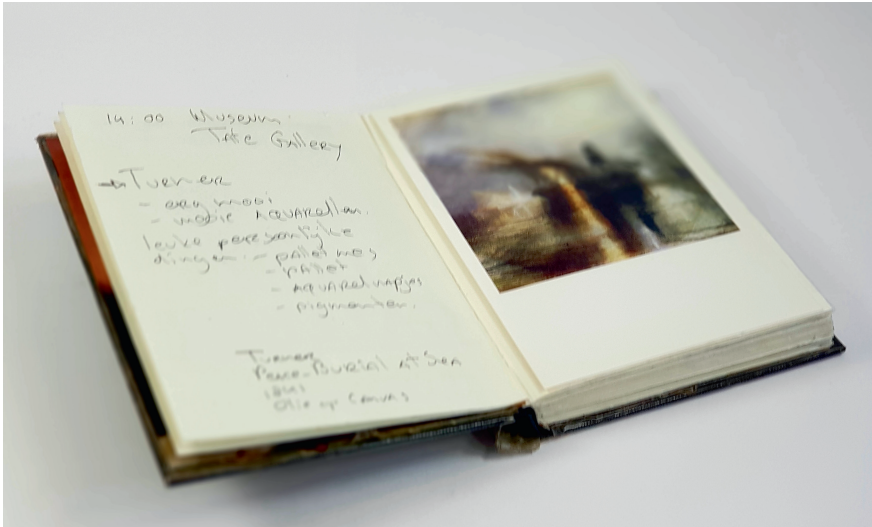 14:00 Museum
Tate Gallery
→ Turner
- erg mooi
- mooie AQUARellen.
leuke persoonlijke
dingen: - palet mes
- pallet
- AQUARelnapjes
- pigmenten.
Turner
Peace-Burial At Sea
Olie op Canvas